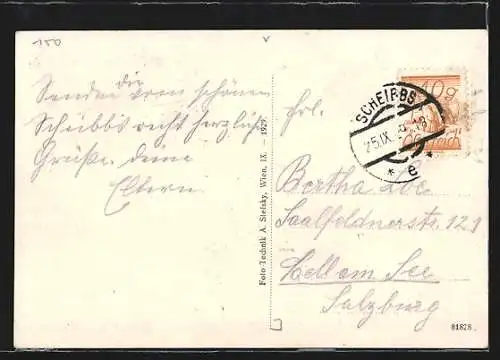 150
Senden dir vom schönen
Scheibbs recht herzliche
Grüße, deine
Eltern
Foto-Technik A. Stefsky, Wien, IX. — 1927
SCHEIBBS
25.IX
* e *
10g
Österreich
Frl.
Bertha
Saalfeldnerstr 121
Zell am See
Salzburg
81828